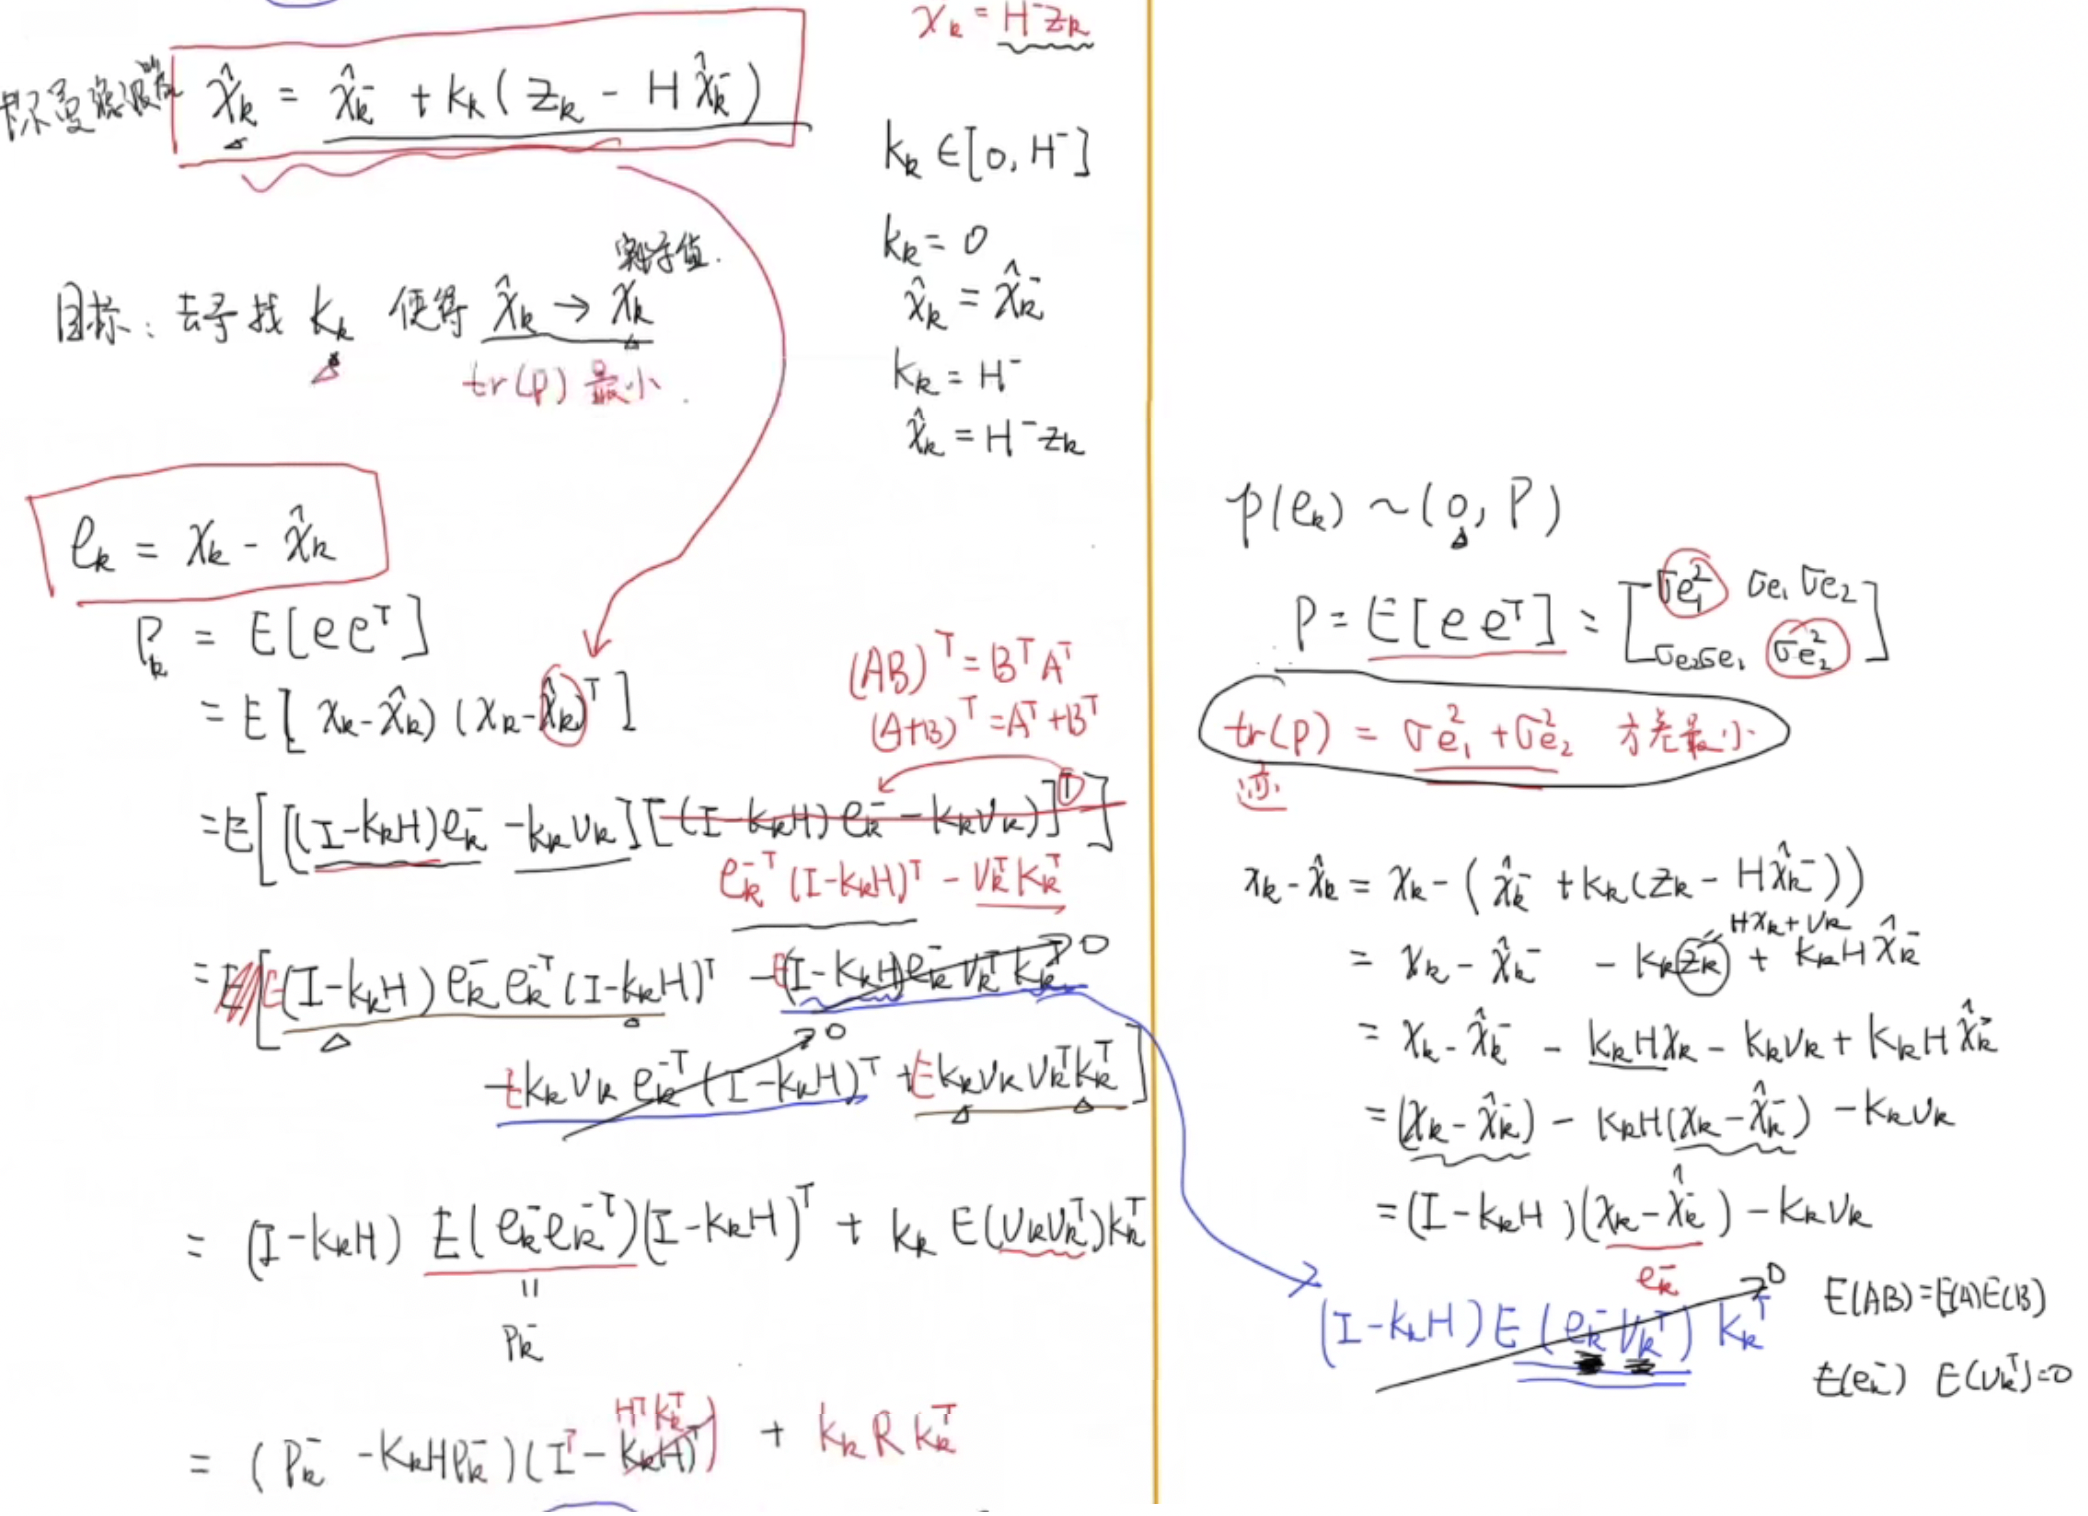 x_k = H⁻z_k
x̂_k = x̂_k⁻ + k_k ( z_k - H x̂_k⁻ )
k_k ∈ [0, H⁻]
k_k = 0
x̂_k = x̂_k⁻
k_k = H⁻
x̂_k = H⁻z_k
目标: 去寻找 k_k 使得 x̂_k → x_k
tr(P) 最小.
e_k = x_k - x̂_k
P_k = E[e eᵀ]
= E[ x_k - x̂_k) (x_k - x̂_k)ᵀ ]
(AB)ᵀ = BᵀAᵀ
(A+B)ᵀ = Aᵀ+Bᵀ
= E[[(I-k_kH)e_k⁻ - k_kv_k][(I-k_kH)e_k⁻ - k_kv_k)]ᵀ]
e_k⁻ᵀ(I-k_kH)ᵀ - v_kᵀk_kᵀ
= E[E(I-k_kH)e_k⁻e_k⁻ᵀ(I-k_kH)ᵀ - E(I-k_kH)e_k⁻v_kᵀk_kᵀ → 0
- E k_kv_ke_k⁻ᵀ(I-k_kH)ᵀ → 0 + E k_kv_kv_kᵀk_kᵀ]
= (I-k_kH) E(e_k⁻e_k⁻ᵀ)(I-k_kH)ᵀ + k_k E(v_kv_kᵀ)k_kᵀ
=
P_k⁻
Hᵀk_kᵀ
= (P_k⁻ - k_kHP_k⁻)(Iᵀ - k_kH)ᵀ) + k_k R k_kᵀ
p(e_k) ~ (0, P)
P = E[e eᵀ] = [σe₁² σe₁σe₂
σe₂σe₁ σe₂²]
tr(P) = σe₁² + σe₂² 方差最小
迹
x_k - x̂_k = x_k - (x̂_k⁻ + k_k(z_k - Hx̂_k⁻))
Hx_k + v_k
= x_k - x̂_k⁻ - k_kz_k + k_kHx̂_k⁻
= x_k - x̂_k⁻ - k_kHx_k - k_kv_k + k_kHx̂_k⁻
= (x_k - x̂_k⁻) - k_kH(x_k - x̂_k⁻) - k_kv_k
= (I-k_kH)(x_k - x̂_k⁻) - k_kv_k
e_k⁻
(I-k_kH)E(e_k⁻v_kᵀ)k_kᵀ → 0
E(AB)=E(A)E(B)
E(e_k⁻) E(v_kᵀ)=0